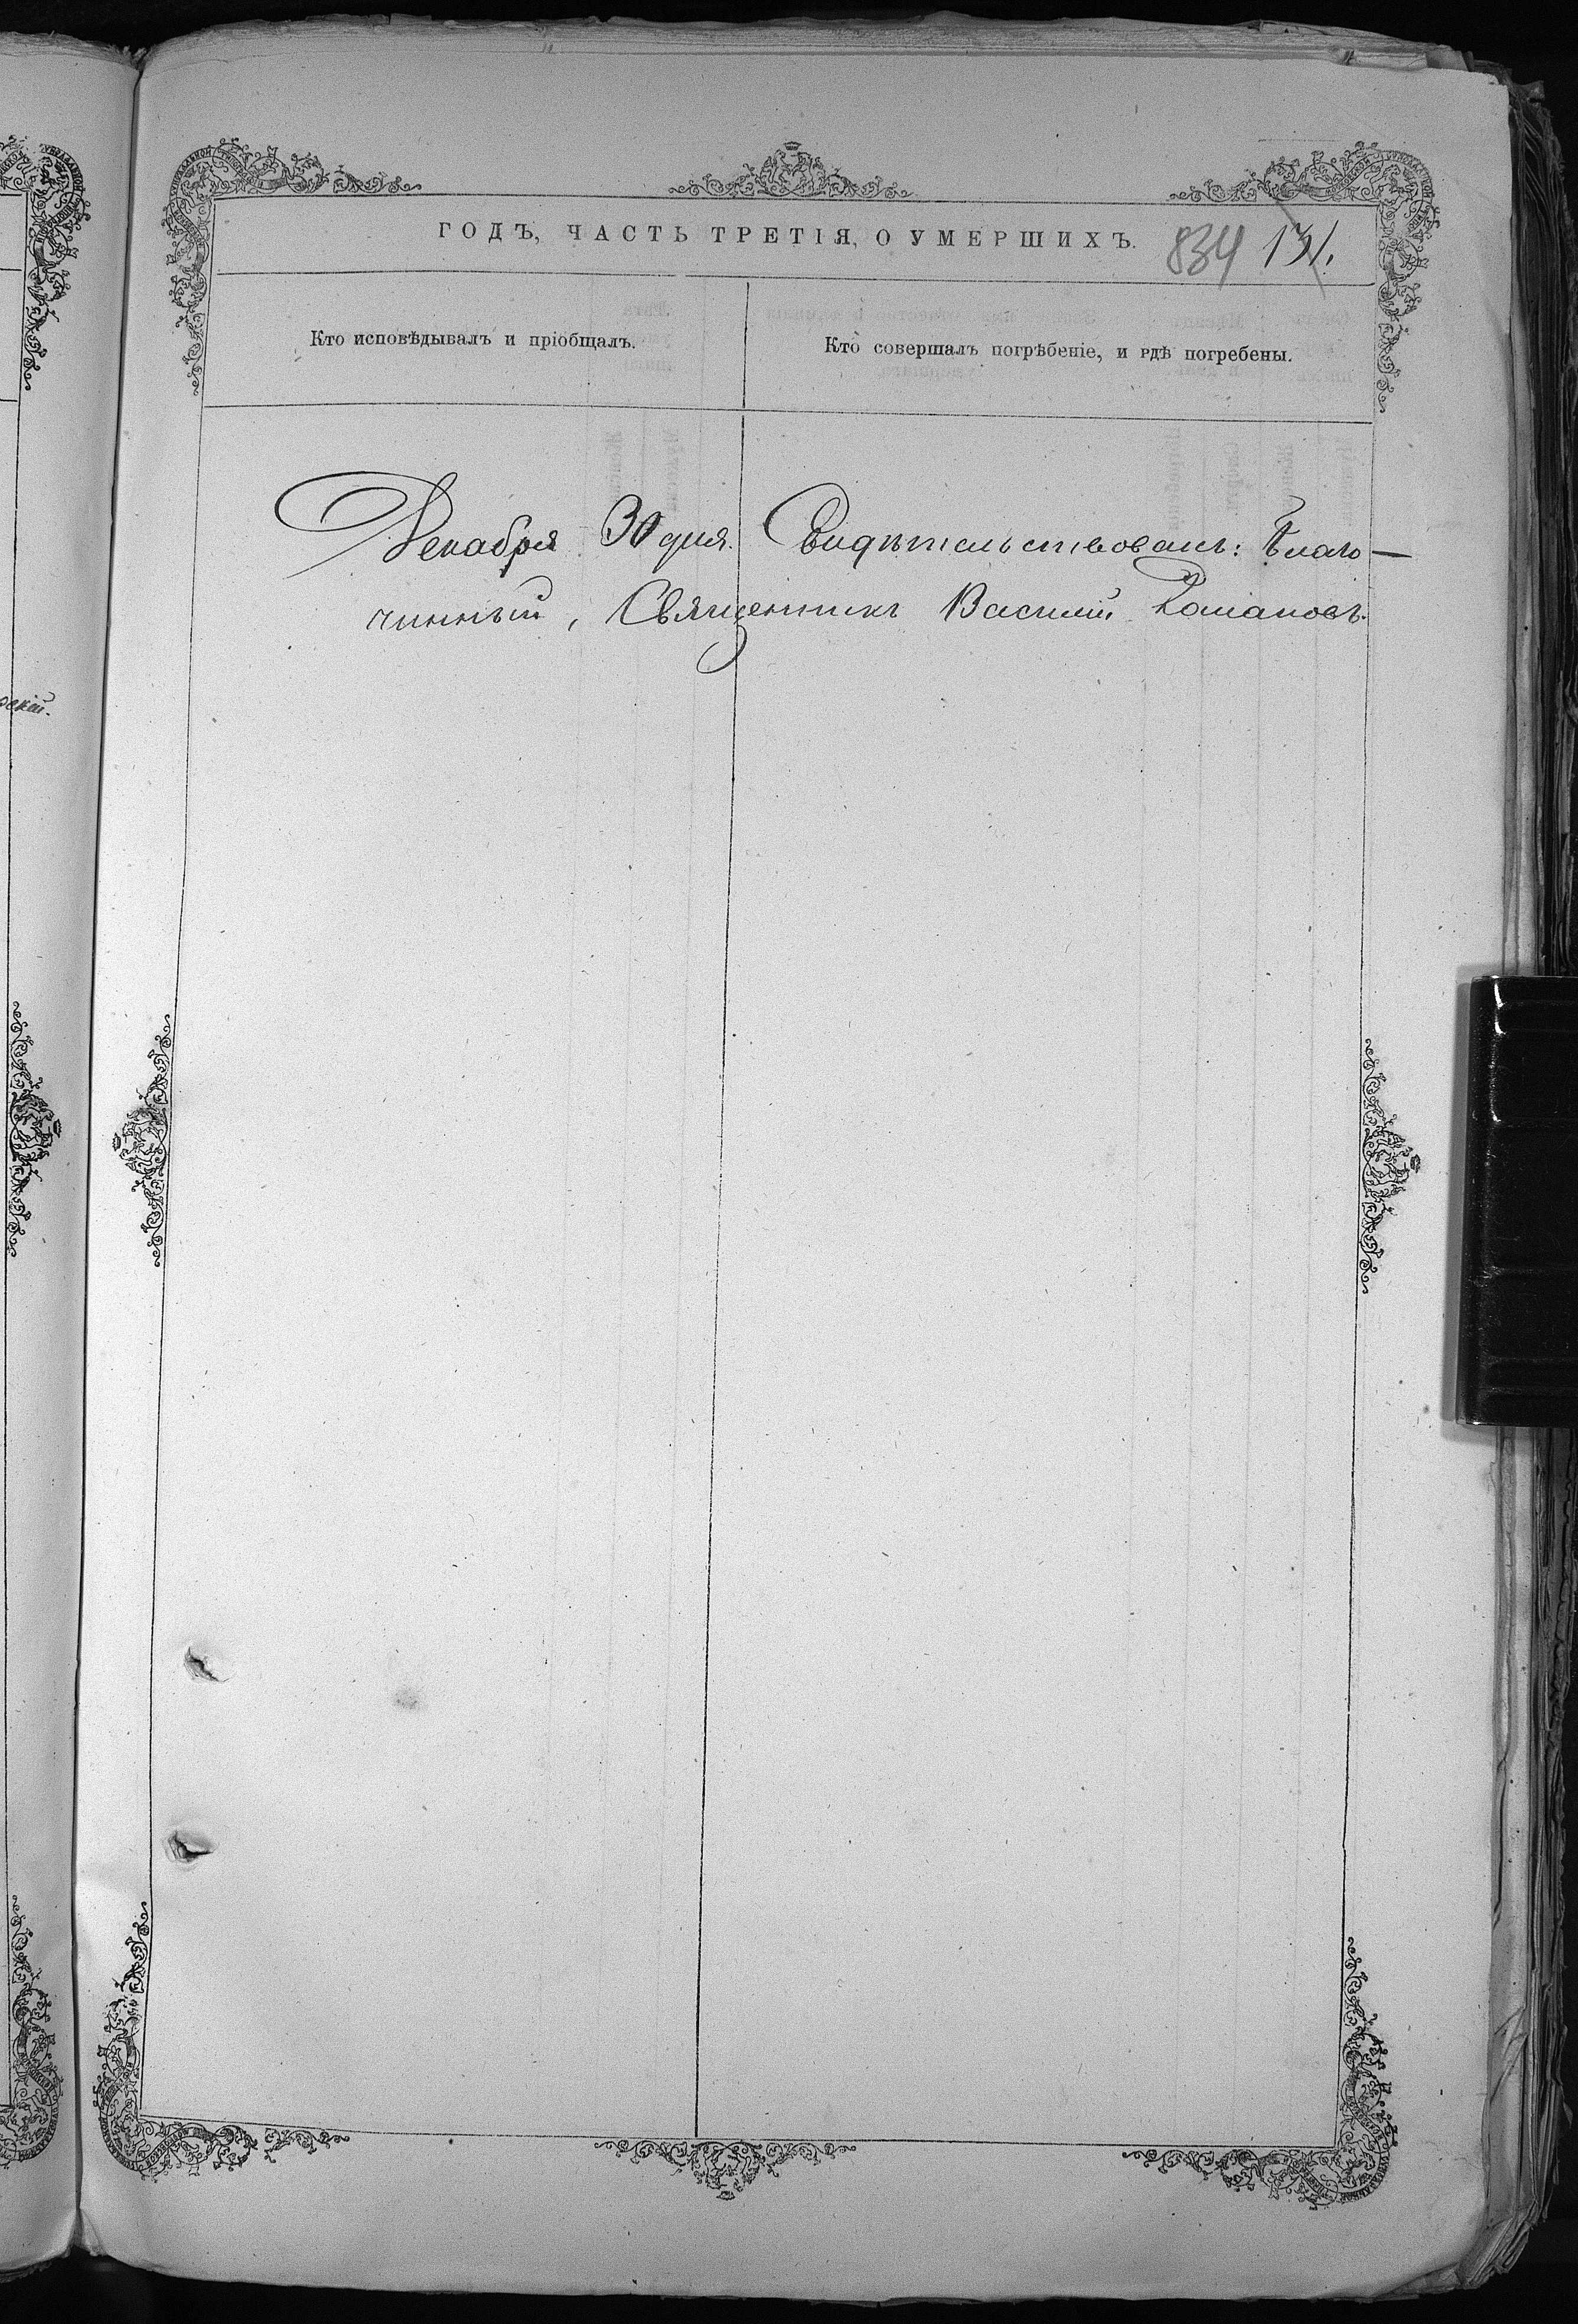 ГОДЪ, ЧАСТЬ ТРЕТІЯ, О УМЕРШИХЪ.
834 131.
Кто исповѣдывалъ и пріобщалъ.
Кто совершалъ погрѣбеніе, и гдѣ погребены.
Декабря 30 дня. Свидѣтельствовалъ: Благо-
чинный, Священникъ Василій Романовъ.